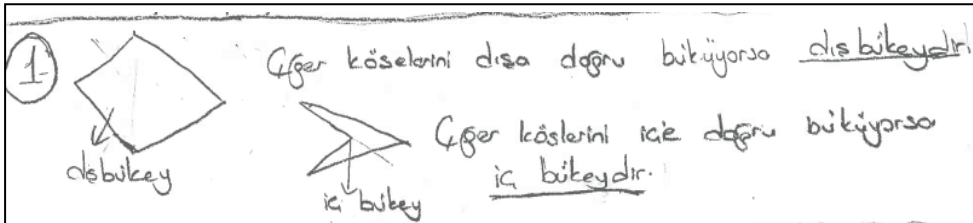 1 Eğer köselerini dışa doğru büküyorsa dışbükeydir.
Eğer köşlerini içe doğru büküyorsa
iç bükeydir.
dışbükey
iç bükey